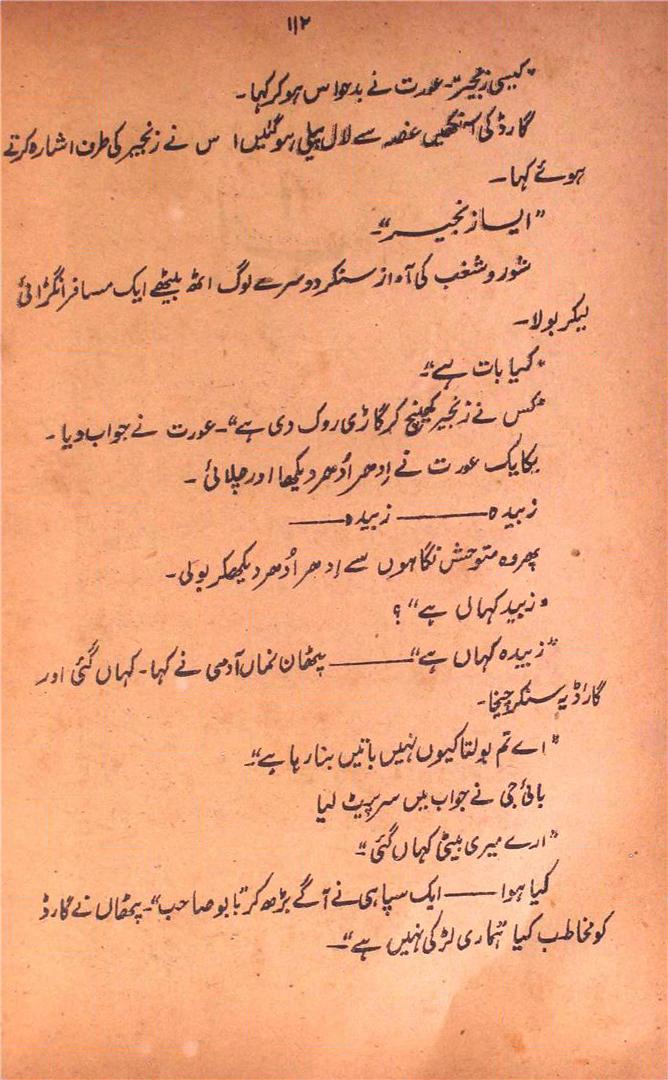 ۱۱۲
"کیسی زنجیر"۔ عورت نے بدحواس ہوکر کہا۔
گارڈ کی آنکھیں غصہ سے لال پیلی ہوگئیں ا س نے زنجیر کی طرف اشارہ کرتے
ہوئے کہا۔
"ایسا زنجیر"۔
شور و شغب کی آواز سنکر دوسرے لوگ اٹھ بیٹھے ایک مسافر انگڑائی
لیکر بولا۔
"کیا بات ہے"۔
"کس نے زنجیر کھینچ کر گاڑی روک دی ہے"۔ عورت نے جواب دیا۔
یکایک عورت نے اِدھر اُدھر دیکھا اور چلائی۔
زبیدہ ——— زبیدہ ———
پھر وہ متوحش نگاہوں سے اِدھر اُدھر دیکھکر بولی۔
"زبید کہاں ہے"؟
"زبیدہ کہاں ہے" ——— پٹھان نماں آدمی نے کہا۔ کہاں گئی اور
گارڈ یہ سنکر چیخا۔
"اے تم بولتا کیوں نہیں باتیں بنا رہا ہے"۔
بائی جی نے جواب میں سر پیٹ لیا
"ارے میری بیٹی کہاں گئی"۔
کیا ہوا —— ایک سپاہی نے آگے بڑھ کر "بابو صاحب"۔ پٹھان نے گارڈ
کو مخاطب کیا "ہماری لڑکی نہیں ہے"۔